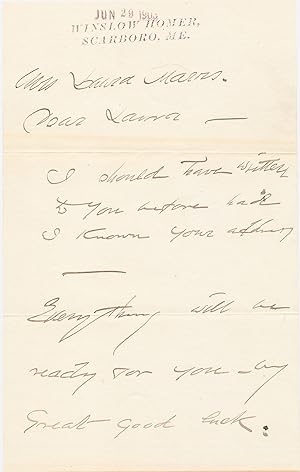 JUN 29 1903
WINSLOW HOMER,
SCARBORO, ME.
Laura
Dear Laura —
I should have written
to you before had
I known your address
—
Everything will be
ready for you – by
Great good luck.